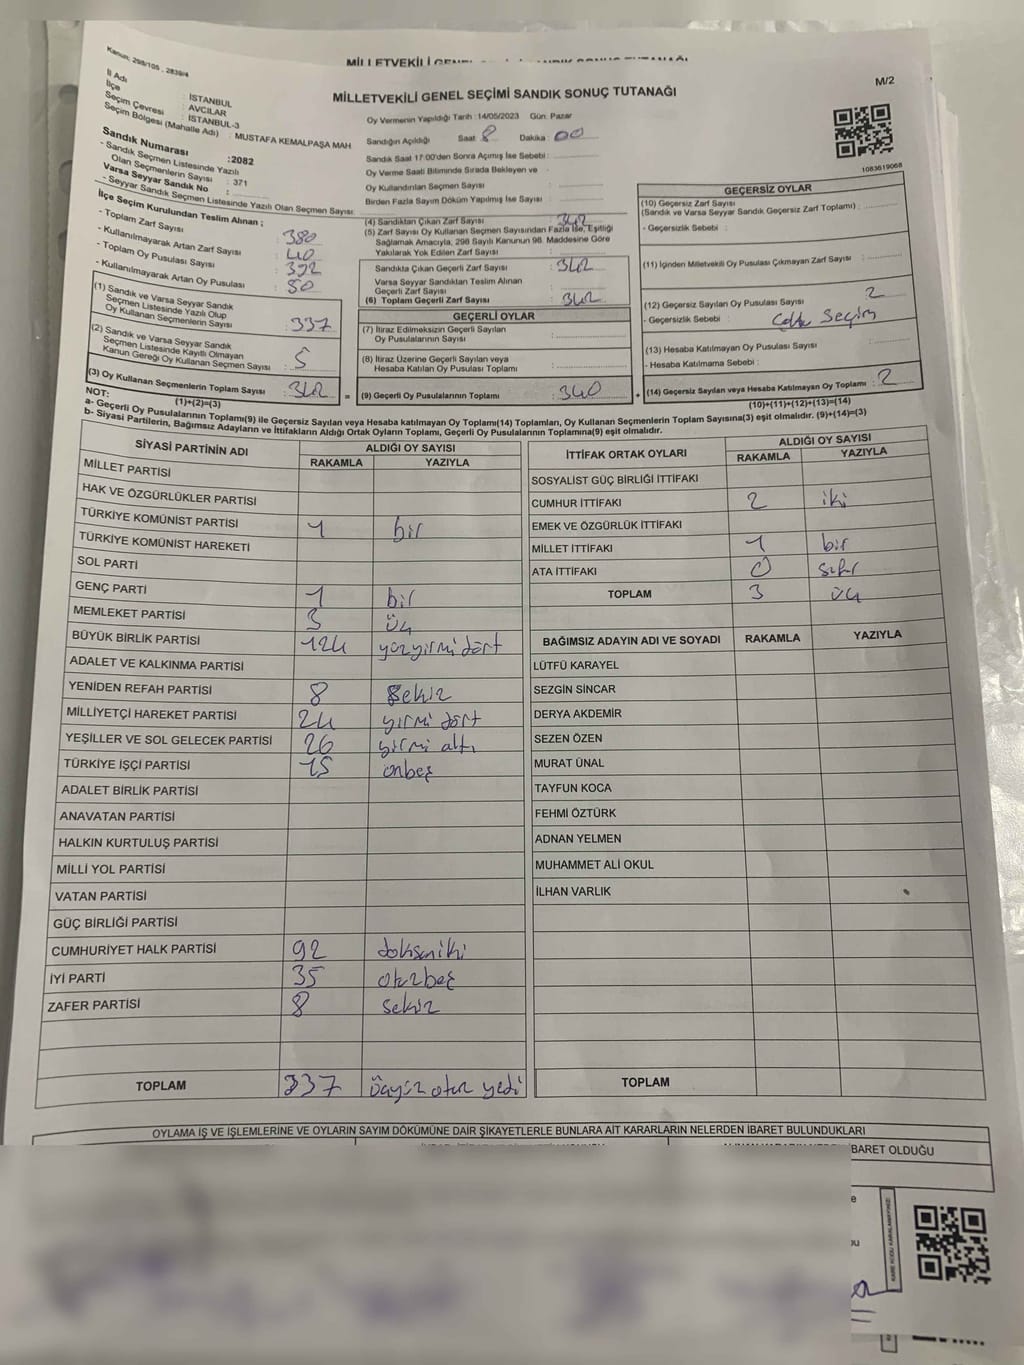 Kanun; 298/105 , 2839/4
MİLLETVEKİLİ GENEL SEÇİMİ SANDIK SONUÇ TUTANAĞI
M/2
İl Adı : İSTANBUL
İlçe : AVCILAR
Seçim Çevresi : İSTANBUL-3
Seçim Bölgesi (Mahalle Adı) : MUSTAFA KEMALPAŞA MAH
Sandık Numarası :2082
- Sandık Seçmen Listesinde Yazılı
Olan Seçmenlerin Sayısı : 371
Varsa Seyyar Sandık No :
- Seyyar Sandık Seçmen Listesinde Yazılı Olan Seçmen Sayısı:
Oy Vermenin Yapıldığı Tarih :14/05/2023 Gün: Pazar
Sandığın Açıldığı Saat : 8 Dakika : 00
Sandık Saat 17:00'den Sonra Açımış İse Sebebi :
Oy Verme Saati Bitiminde Sırada Bekleyen ve
Oy Kullandırılan Seçmen Sayısı :
Birden Fazla Sayım Döküm Yapılmış İse Sayısı :
1083619068
İlçe Seçim Kurulundan Teslim Alınan ;
- Toplam Zarf Sayısı : 380
- Kullanılmayarak Artan Zarf Sayısı : 40
- Toplam Oy Pusulası Sayısı : 392
- Kullanılmayarak Artan Oy Pusulası : 50
(1) Sandık ve Varsa Seyyar Sandık
Seçmen Listesinde Yazılı Olup
Oy Kullanan Seçmenlerin Sayısı : 337
(2) Sandık ve Varsa Seyyar Sandık
Seçmen Listesinde Kayıtlı Olmayan
Kanun Gereği Oy Kullanan Seçmen Sayısı : 5
(3) Oy Kullanan Seçmenlerin Toplam Sayısı : 342
(1)+(2)=(3)
(4) Sandıktan Çıkan Zarf Sayısı : 342
(5) Zarf Sayısı Oy Kullanan Seçmen Sayısından Fazla İse, Eşitliği
Sağlamak Amacıyla, 298 Sayılı Kanunun 98. Maddesine Göre
Yakılarak Yok Edilen Zarf Sayısı :
Sandıkta Çıkan Geçerli Zarf Sayısı : 342
Varsa Seyyar Sandıktan Teslim Alınan
Geçerli Zarf Sayısı :
(6) Toplam Geçerli Zarf Sayısı : 342
GEÇERLİ OYLAR
(7) İtiraz Edilmeksizin Geçerli Sayılan
Oy Pusulalarının Sayısı :
(8) İtiraz Üzerine Geçerli Sayılan veya
Hesaba Katılan Oy Pusulası Toplamı :
= (9) Geçerli Oy Pusulalarının Toplamı : 340
GEÇERSİZ OYLAR
(10) Geçersiz Zarf Sayısı
(Sandık ve Varsa Seyyar Sandık Geçersiz Zarf Toplamı) :
- Geçersizlik Sebebi :
(11) İçinden Milletvekili Oy Pusulası Çıkmayan Zarf Sayısı :
(12) Geçersiz Sayılan Oy Pusulası Sayısı : 2
- Geçersizlik Sebebi : Seçim
(13) Hesaba Katılmayan Oy Pusulası Sayısı :
- Hesaba Katılmama Sebebi :
+ (14) Geçersiz Sayılan veya Hesaba Katılmayan Oy Toplamı : 2
(10)+(11)+(12)+(13)=(14)
NOT:
a- Geçerli Oy Pusulalarının Toplamı(9) ile Geçersiz Sayılan veya Hesaba katılmayan Oy Toplamı(14) Toplamları, Oy Kullanan Seçmenlerin Toplam Sayısına(3) eşit olmalıdır. (9)+(14)=(3)
b- Siyasi Partilerin, Bağımsız Adayların ve İttifakların Aldığı Ortak Oyların Toplamı, Geçerli Oy Pusulalarının Toplamına(9) eşit olmalıdır.
SİYASİ PARTİNİN ADI ALDIĞI OY SAYISI
RAKAMLA YAZIYLA
MİLLET PARTİSİ
HAK VE ÖZGÜRLÜKLER PARTİSİ
TÜRKİYE KOMÜNİST PARTİSİ 1 bir
TÜRKİYE KOMÜNİST HAREKETİ
SOL PARTİ
GENÇ PARTİ 1 bir
MEMLEKET PARTİSİ 3 üç
BÜYÜK BİRLİK PARTİSİ 124 yüzyirmi dört
ADALET VE KALKINMA PARTİSİ
YENİDEN REFAH PARTİSİ 8 sekiz
MİLLİYETÇİ HAREKET PARTİSİ 24 yirmi dört
YEŞİLLER VE SOL GELECEK PARTİSİ 26 yirmi altı
TÜRKİYE İŞÇİ PARTİSİ 15 onbeş
ADALET BİRLİK PARTİSİ
ANAVATAN PARTİSİ
HALKIN KURTULUŞ PARTİSİ
MİLLİ YOL PARTİSİ
VATAN PARTİSİ
GÜÇ BİRLİĞİ PARTİSİ
CUMHURİYET HALK PARTİSİ 92 doksaniki
İYİ PARTİ 35 otuzbeş
ZAFER PARTİSİ 8 sekiz
TOPLAM 337 üçyüz otuz yedi
İTTİFAK ORTAK OYLARI ALDIĞI OY SAYISI
RAKAMLA YAZIYLA
SOSYALİST GÜÇ BİRLİĞİ İTTİFAKI
CUMHUR İTTİFAKI 2 iki
EMEK VE ÖZGÜRLÜK İTTİFAKI
MİLLET İTTİFAKI 1 bir
ATA İTTİFAKI 0 sıfır
TOPLAM 3 üç
BAĞIMSIZ ADAYIN ADI VE SOYADI RAKAMLA YAZIYLA
LÜTFÜ KARAYEL
SEZGİN SİNCAR
DERYA AKDEMİR
SEZEN ÖZEN
MURAT ÜNAL
TAYFUN KOCA
FEHMİ ÖZTÜRK
ADNAN YELMEN
MUHAMMET ALİ OKUL
İLHAN VARLIK
TOPLAM
OYLAMA İŞ VE İŞLEMLERİNE VE OYLARIN SAYIM DÖKÜMÜNE DAİR ŞİKAYETLERLE BUNLARA AİT KARARLARIN NELERDEN İBARET BULUNDUKLARI
BARET OLDUĞU